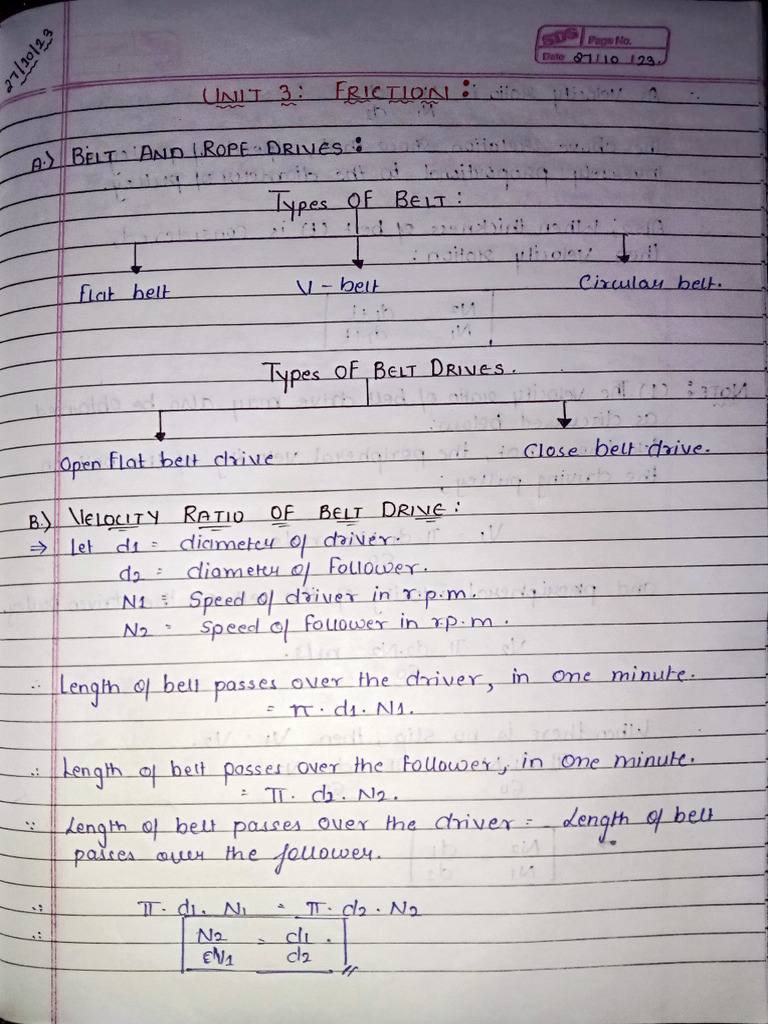 27/10/23
SDS Page No.
Date 27/10/23.
UNIT 3: FRICTION:
A.) BELT AND ROPE DRIVES:
Types OF BELT:
Flat belt V - belt Circular belt.
Types OF BELT DRIVES.
Open flat belt drive Close belt drive.
B.) VELOCITY RATIO OF BELT DRIVE:
⇒ Let d1 = diameter of driver.
d2 = diameter of follower.
N1 = Speed of driver in r.p.m.
N2 = Speed of follower in r.p.m.
∴ Length of belt passes over the driver, in one minute.
= π. d1. N1.
∴ Length of belt passes over the follower, in one minute.
= π. d2. N2.
∵ Length of belt passes over the driver = Length of belt
passes over the follower.
∴ π. d1. N1 = π. d2. N2
∴ N2 = d1.
N1 d2